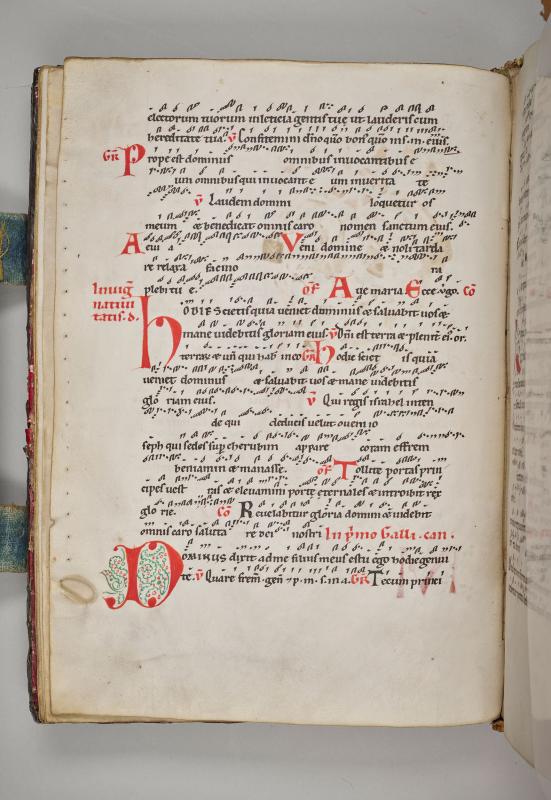 electorum tuorum in leticia gentis tue ut lauderis cum
hereditate tua. V Confitemini dño quo bon' quo in s. m. eius.
GR Prope est dominus omnibus invocantibus e
um omnibus qui invocant e um in verita te
V Laudem domini loquetur os
meum & benedicat omnis caro nomen sanctum eius.
A evi a Veni domine & noli tarda
re relaxa facino ra
plebi tu e. of Ave maria Ecce vgo. Cõ
In vig̃
nativi
tatis. d.
hODIE scietis quia veniet dominus & salvabit vos &
mane videbitis gloriam eius. V Dñi est terra & plenit' ei'. or.
terrar' & uñ qui hab in eo GR hodie sciet is quia
veniet dominus & salvabit vos & mane videbitis
glo riam eius. V Qui regis israhel inten
de qui deducis velut ovem io
seph qui sedes sup cherubim appare coram effrem
beniamin & manasse. of Tollite portas prin
cipes vest ras & elevamini porte eternales & introibit rex
glo rie. Cõ Revelabitur gloria domini & videbit
omnis caro saluta re dei nostri In p'mo Galli. can.
DOMINUS dixit ad me filius meus es tu ego hodie genui
te. V Quare frem. gen. & p. m. s. in a. GR Tecum princi